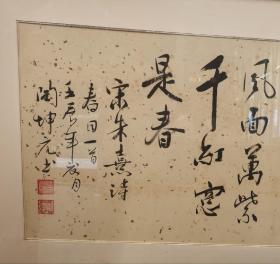 風面萬紫
千紅總
是春
宋朱熹詩
春日一首
壬辰年夏月
陶坤元书